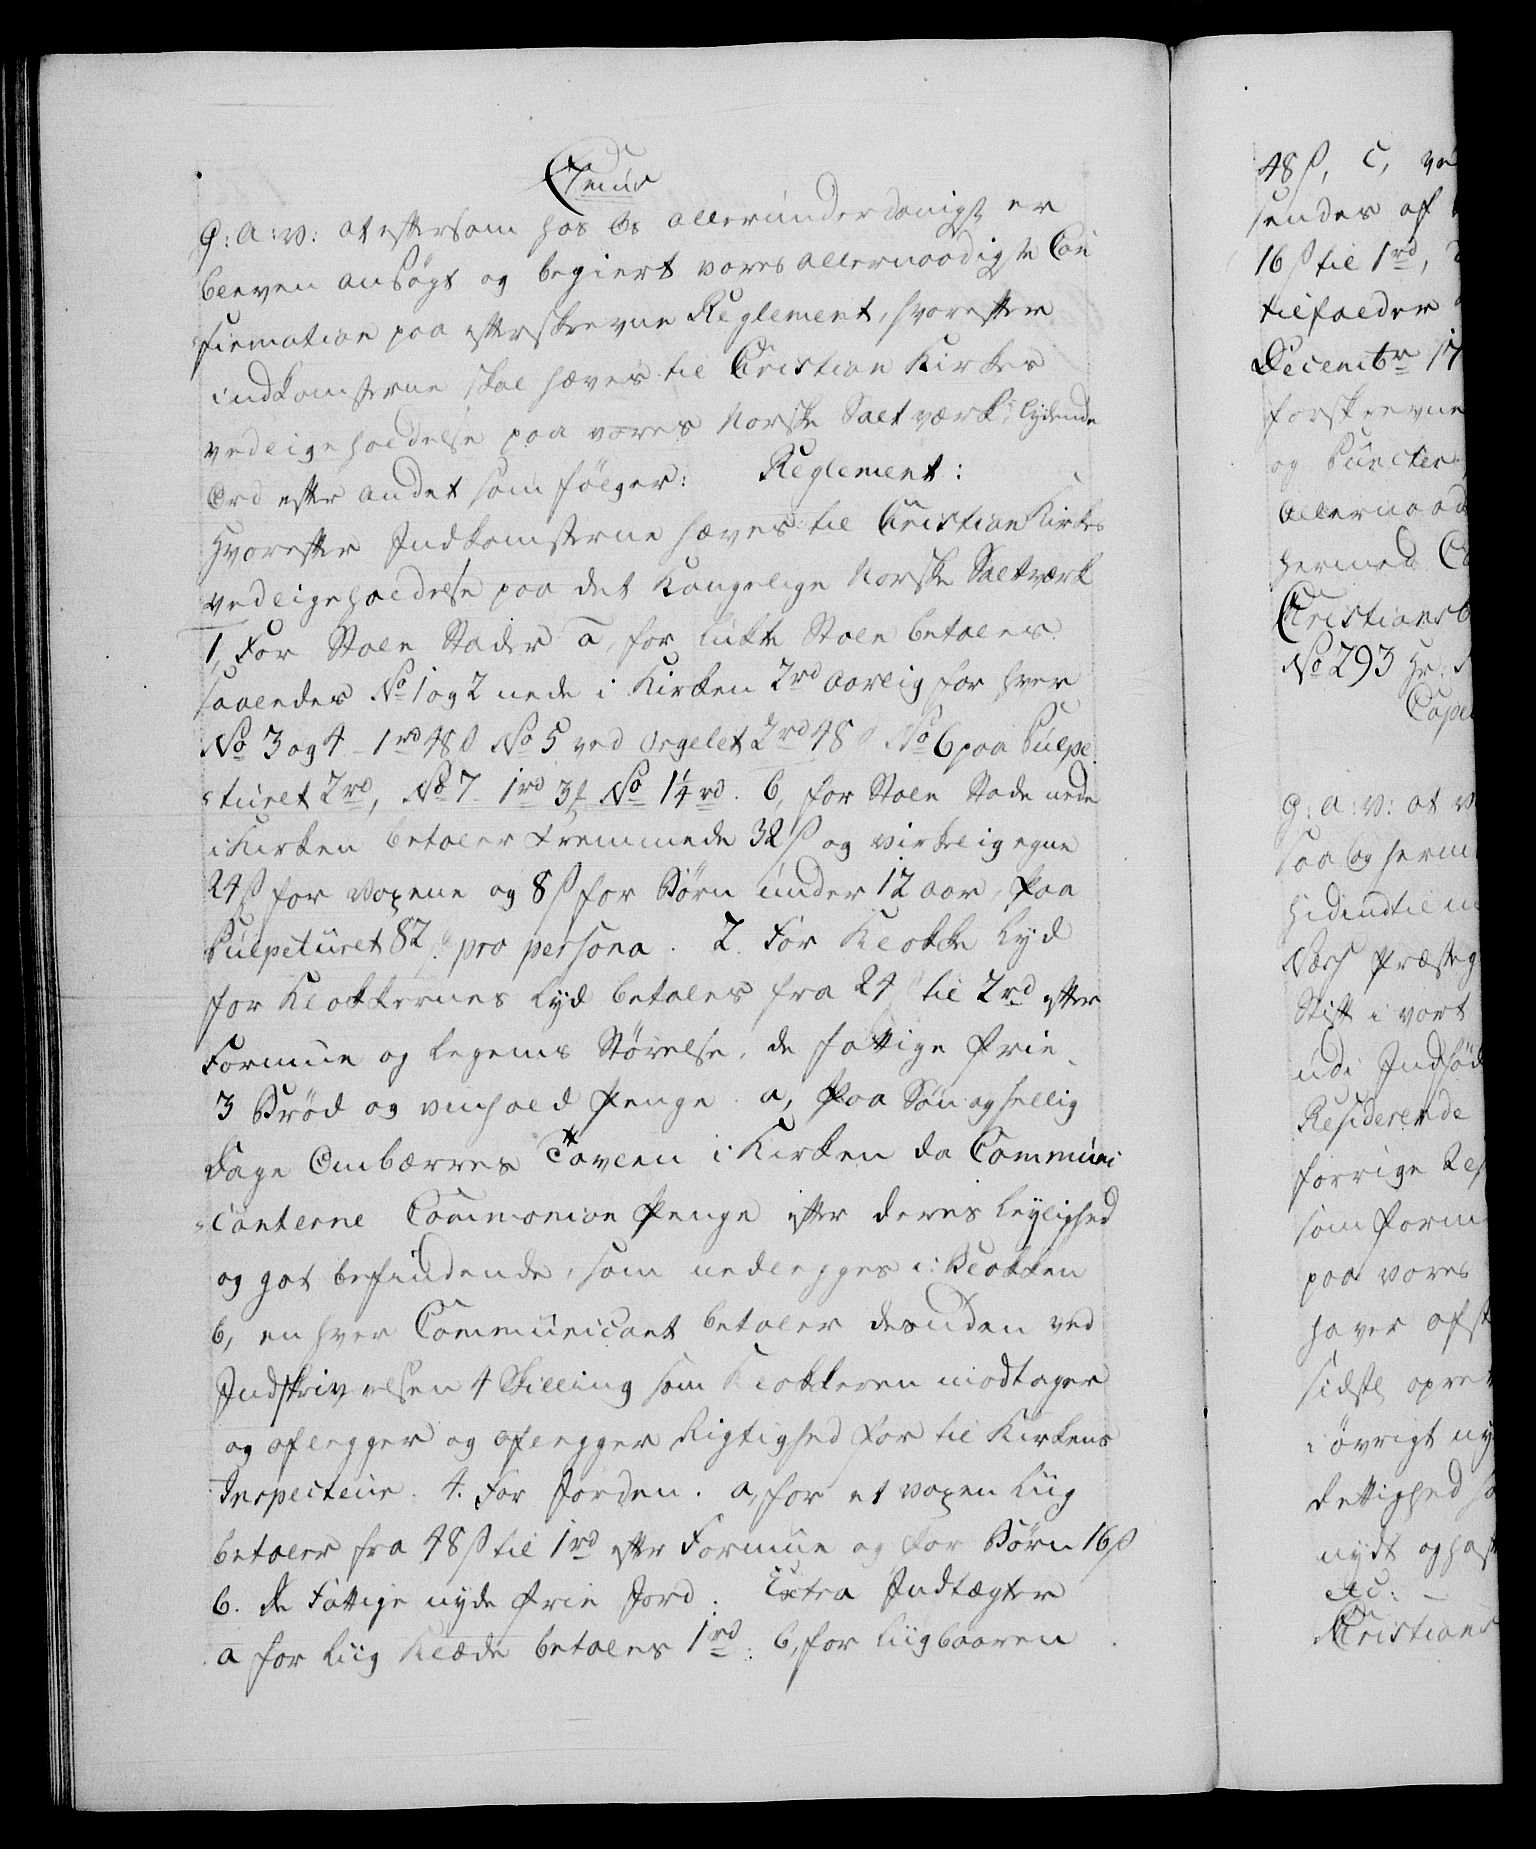 G: A: V: at eftersom hos Os allerunderdanigst er
bleven ansögt og begiert vores allernaadigste Con
firmation paa efterskrevne Reglement, hvorefter
indkomsterne skal hæves til Cristian Kirkes
vedligeholdelse paa vores Norske Saltværk, lydende
Ord efter andet som fölger: Reglement:
Hvorefter Indkomsterne hæves til Cristian Kirkes
vedligeholdelse paa det Kongelige Norske Saltværk
1, For Stole Stader a, for lukte Stole betales
saaledes No 1 og 2 nede i Kirken 2rd aarlig for hver
No 3 og 4 - 1rd 48ß No 5 ved Orgelet 2rd 48ß No 6 paa Pulpe
turet 2rd, No 7 1rd 3ß No 1¼rd. b, for Stole Stade nede
i Kirken betaler Fremmede 32ß og virkelig egne
24ß for Voxene og 8ß for Börn under 12 aar, paa
Pulpeturet 82ß pro persona. 2. For Klokke Lyd
for Klokkernes Lyd betales fra 24ß til 2rd efter
Formue og Legems Störelse, de fattige frie
3 Bröd og viinhold Penge. a, Paa Søn og hellig
Dage Ombærres Tavlen i Kirken da Communi
canterne Commonion Penge efter deres Leylighed
og got befindende, som nedlegges i Blokken
b, en hver Communicant betaler desuden ved
Indskrivelsen 4 Skilling som Klokkeren modtager
og aflegger og aflegger Rigtighed for til Kirkens
Inspecteur. 4. For Jorden. a, for et voxen Liig
betaler fra 48ß til 1rd efter Formue og for Börn 16ß
b. de Fattige nyde frie Jord. Extra Indtægter
a for Liig Klæde betales 1rd: b, for Liigbaaren
48ß, C, ve
sendes af
16ß til 1rd,
tilfalder
Decembr 17
forskrevne
og Puncter
Allernaad
hermed Co
Cristiansb
No 293 Hr:
Capel
G: A: V: at v
saa og herm
hidindtil
Næs Præsteg
Stift i vort
udi Indföd
Residerende
forrige Res
som form
paa vores
haver afst
sidst opre
i övrigt ny
Rettighed sa
nydt og haf
etc: —
Cristians